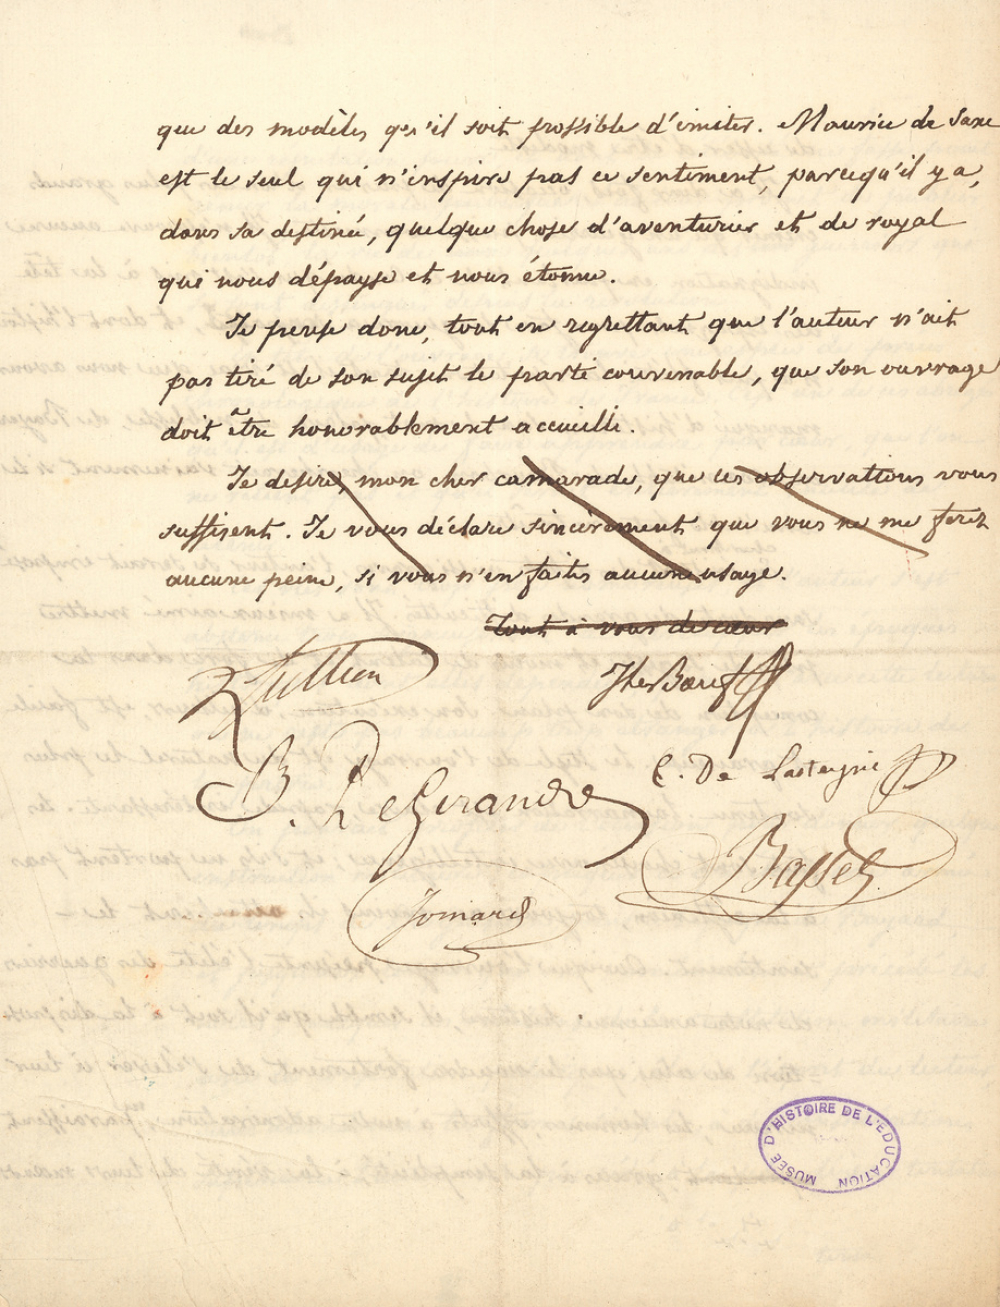 que des modèles qu'il soit possible d'imiter. Maurice de Saxe
est le seul qui n'inspire pas ce sentiment, parcequ'il y a,
dans sa destinée, quelque chose d'aventurier et de royal
qui nous dépayse et nous étonne.
Je pense donc, tout en regrettant que l'auteur n'ait
pas tiré de son sujet le parti convenable, que son ouvrage
doit être honorablement accueilli.
Je desire, mon cher camarade, que ces observations vous
suffisent. Je vous déclare sincèrement que vous ne me ferez
aucune peine, si vous n'en faites aucun usage.
Tout à vous de cœur
B. Degerando
C. De Lasteyrie
Basset
Jomard
MUSÉE D'HISTOIRE DE L'EDUCATION